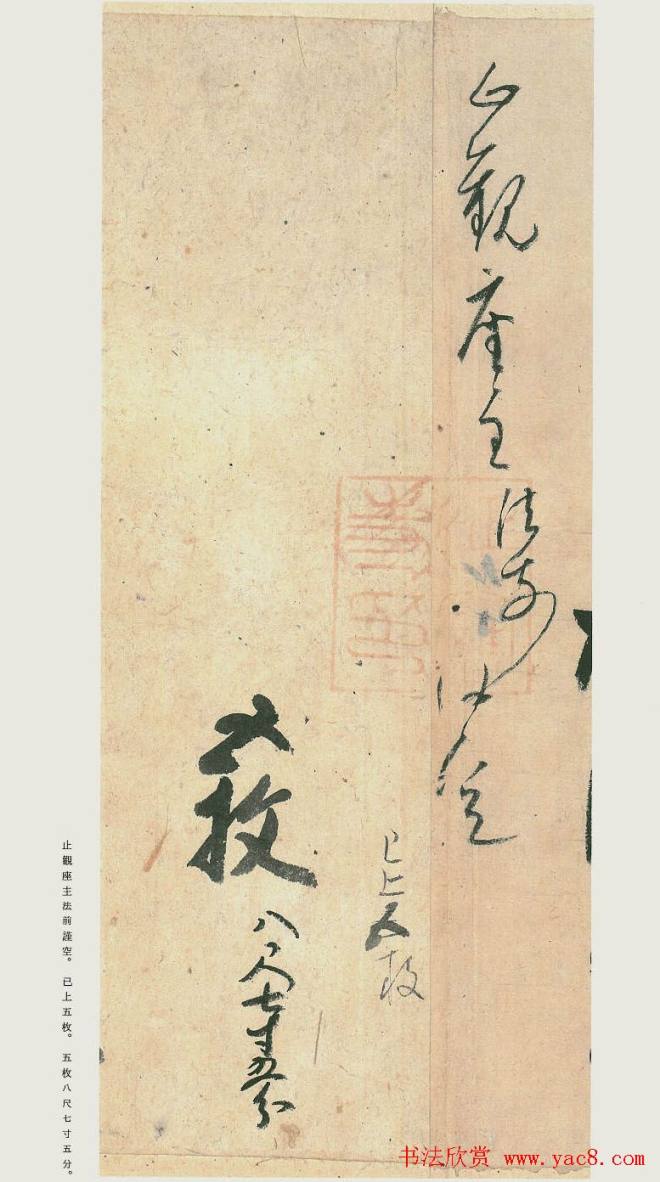 止觀座主法前謹空
已上五枚
五枚
八尺七寸五分
止觀座主法前謹空。 已上五枚。 五枚八尺七寸五分。
书法欣赏 www.yac8.com